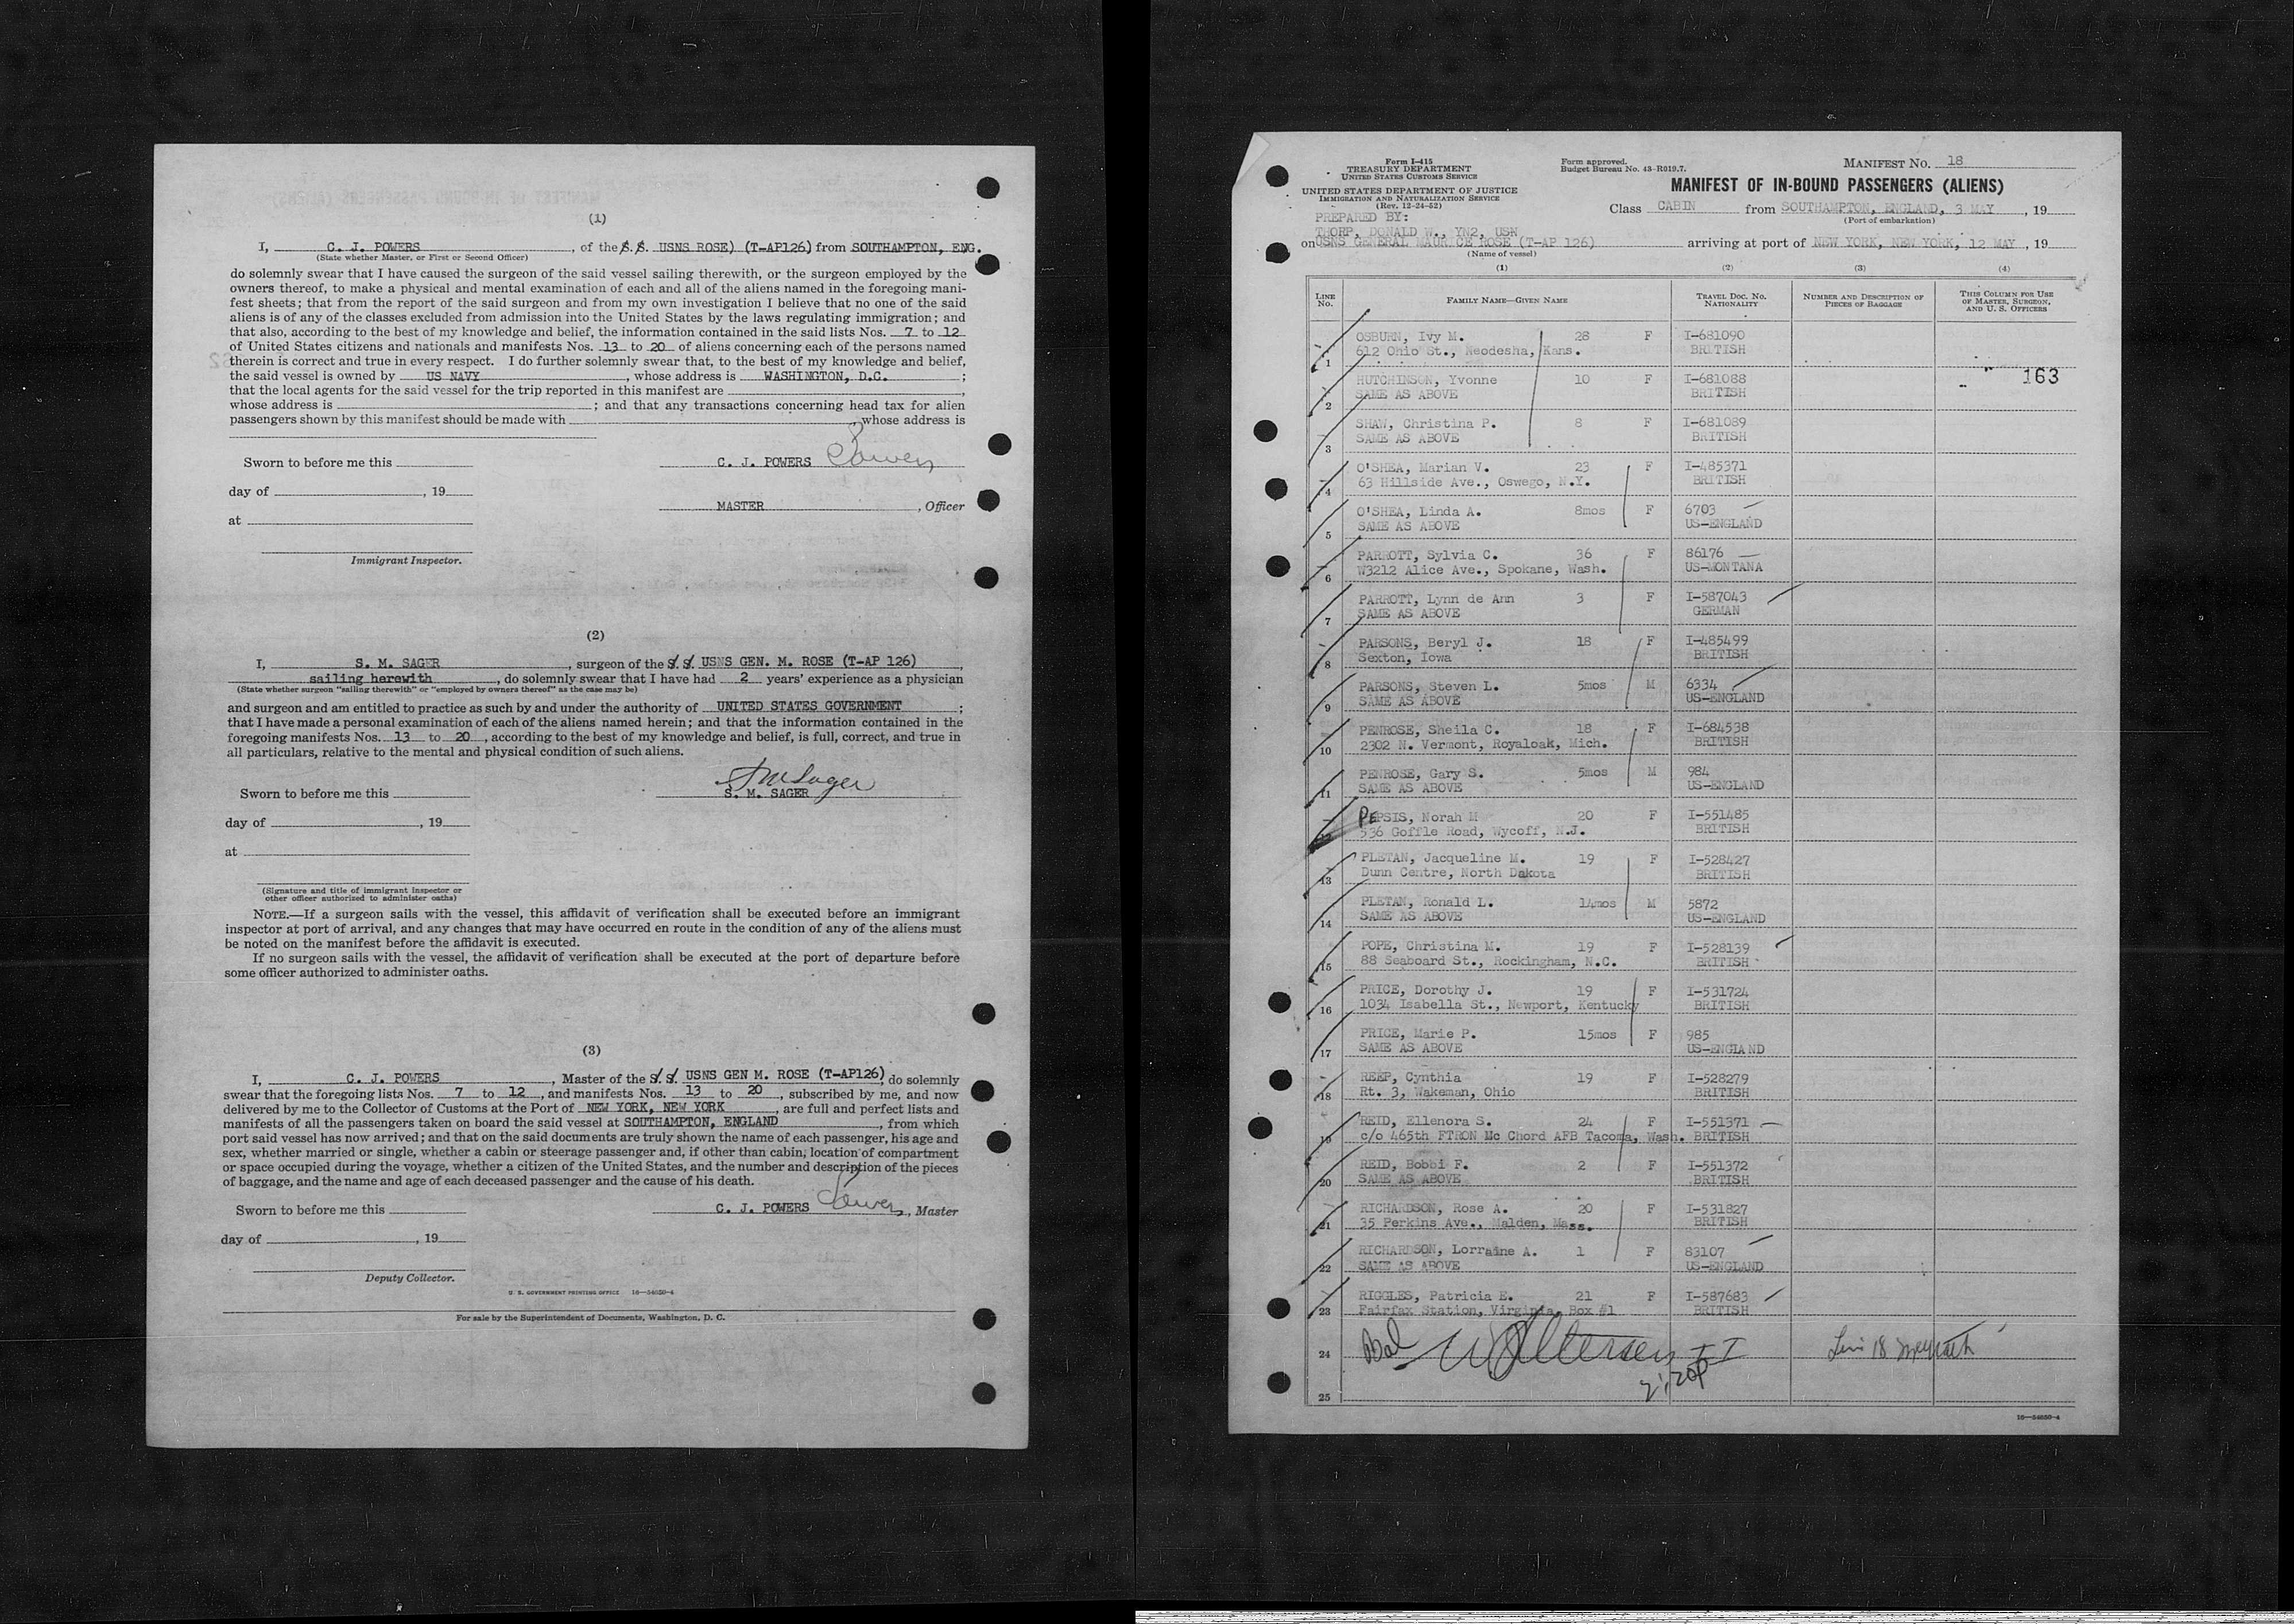 (1)
I, C. J. POWERS, of the S. S. USNS ROSE) (T-AP126) from SOUTHAMPTON, ENG.
(State whether Master, or First or Second Officer)
do solemnly swear that I have caused the surgeon of the said vessel sailing therewith, or the surgeon employed by the
owners thereof, to make a physical and mental examination of each and all of the aliens named in the foregoing mani-
fest sheets; that from the report of the said surgeon and from my own investigation I believe that no one of the said
aliens is of any of the classes excluded from admission into the United States by the laws regulating immigration; and
that also, according to the best of my knowledge and belief, the information contained in the said lists Nos. 7 to 12
of United States citizens and nationals and manifests Nos. 13 to 20 of aliens concerning each of the persons named
therein is correct and true in every respect. I do further solemnly swear that, to the best of my knowledge and belief,
the said vessel is owned by US NAVY, whose address is WASHINGTON, D.C. ;
that the local agents for the said vessel for the trip reported in this manifest are ,
whose address is ; and that any transactions concerning head tax for alien
passengers shown by this manifest should be made with , whose address is
Sworn to before me this
C. J. POWERS Powers
day of , 19
MASTER , Officer
at
Immigrant Inspector.
(2)
I, S. M. SAGER, surgeon of the S. S. USNS GEN. M. ROSE (T-AP 126),
sailing herewith, do solemnly swear that I have had 2 years' experience as a physician
(State whether surgeon "sailing therewith" or "employed by owners thereof" as the case may be)
and surgeon and am entitled to practice as such by and under the authority of UNITED STATES GOVERNMENT ;
that I have made a personal examination of each of the aliens named herein; and that the information contained in the
foregoing manifests Nos. 13 to 20, according to the best of my knowledge and belief, is full, correct, and true in
all particulars, relative to the mental and physical condition of such aliens.
S M Sager
Sworn to before me this
S. M. SAGER
day of , 19
at
(Signature and title of immigrant inspector or
other officer authorized to administer oaths)
NOTE.—If a surgeon sails with the vessel, this affidavit of verification shall be executed before an immigrant
inspector at port of arrival, and any changes that may have occurred en route in the condition of any of the aliens must
be noted on the manifest before the affidavit is executed.
If no surgeon sails with the vessel, the affidavit of verification shall be executed at the port of departure before
some officer authorized to administer oaths.
(3)
I, C. J. POWERS, Master of the S. S. USNS GEN M. ROSE (T-AP126), do solemnly
swear that the foregoing lists Nos. 7 to 12, and manifests Nos. 13 to 20, subscribed by me, and now
delivered by me to the Collector of Customs at the Port of NEW YORK, NEW YORK, are full and perfect lists and
manifests of all the passengers taken on board the said vessel at SOUTHAMPTON, ENGLAND, from which
port said vessel has now arrived; and that on the said documents are truly shown the name of each passenger, his age and
sex, whether married or single, whether a cabin or steerage passenger and, if other than cabin, location of compartment
or space occupied during the voyage, whether a citizen of the United States, and the number and description of the pieces
of baggage, and the name and age of each deceased passenger and the cause of his death.
Sworn to before me this
C. J. POWERS Powers, Master
day of , 19
Deputy Collector.
U. S. GOVERNMENT PRINTING OFFICE 16—54650-4
For sale by the Superintendent of Documents, Washington, D. C.
Form I-415
TREASURY DEPARTMENT
UNITED STATES CUSTOMS SERVICE
UNITED STATES DEPARTMENT OF JUSTICE
IMMIGRATION AND NATURALIZATION SERVICE
(Rev. 12-24-52)
Form approved.
Budget Bureau No. 43-R019.7.
MANIFEST No. 18
MANIFEST OF IN-BOUND PASSENGERS (ALIENS)
Class CABIN from SOUTHAMPTON, ENGLAND, 3 MAY, 19
(Port of embarkation)
PREPARED BY:
THORP, DONALD W., YN2, USN
on USNS GENERAL MAURICE ROSE (T-AP 126) arriving at port of NEW YORK, NEW YORK, 12 MAY, 19
(Name of vessel)
(1) (2) (3) (4)
LINE No. FAMILY NAME—GIVEN NAME TRAVEL DOC. No. NATIONALITY NUMBER AND DESCRIPTION OF PIECES OF BAGGAGE THIS COLUMN FOR USE OF MASTER, SURGEON, AND U. S. OFFICERS
OSBURN, Ivy M. 28 F I-681090
1 612 Ohio St., Neodesha, Kans. BRITISH
163
HUTCHINSON, Yvonne 10 F I-681088
2 SAME AS ABOVE BRITISH
SHAW, Christina P. 8 F I-681089
3 SAME AS ABOVE BRITISH
O'SHEA, Marian V. 23 F I-485371
4 63 Hillside Ave., Oswego, N.Y. BRITISH
O'SHEA, Linda A. 8mos F 6703
5 SAME AS ABOVE US-ENGLAND
PARROTT, Sylvia C. 36 F 86176
6 W3212 Alice Ave., Spokane, Wash. US-MONTANA
PARROTT, Lynn de Ann 3 F I-587043
7 SAME AS ABOVE GERMAN
PARSONS, Beryl J. 18 F I-485499
8 Sexton, Iowa BRITISH
PARSONS, Steven L. 5mos M 6334
9 SAME AS ABOVE US-ENGLAND
PENROSE, Sheila C. 18 F I-684538
10 2302 N. Vermont, Royaloak, Mich. BRITISH
PENROSE, Gary S. 5mos M 984
11 SAME AS ABOVE US-ENGLAND
PEPSIS, Norah M 20 F I-551485
12 536 Goffle Road, Wycoff, N.J. BRITISH
PLETAN, Jacqueline M. 19 F I-528427
13 Dunn Centre, North Dakota BRITISH
PLETAN, Ronald L. 14mos M 5872
14 SAME AS ABOVE US-ENGLAND
POPE, Christina M. 19 F I-528139
15 88 Seaboard St., Rockingham, N.C. BRITISH
PRICE, Dorothy J. 19 F I-531724
16 1034 Isabella St., Newport, Kentucky BRITISH
PRICE, Marie P. 15mos F 985
17 SAME AS ABOVE US-ENGLAND
REEP, Cynthia 19 F I-528279
18 Rt. 3, Wakeman, Ohio BRITISH
REID, Ellenora S. 24 F I-551371
19 c/o 465th FTRON Mc Chord AFB Tacoma, Wash. BRITISH
REID, Bobbi F. 2 F I-551372
20 SAME AS ABOVE BRITISH
RICHARDSON, Rose A. 20 F I-531827
21 35 Perkins Ave., Malden, Mass. BRITISH
RICHARDSON, Lorraine A. 1 F 83107
22 SAME AS ABOVE US-ENGLAND
RIGGLES, Patricia E. 21 F I-587683
23 Fairfax Station, Virginia, Box #1 BRITISH
24
25
16—54650-4